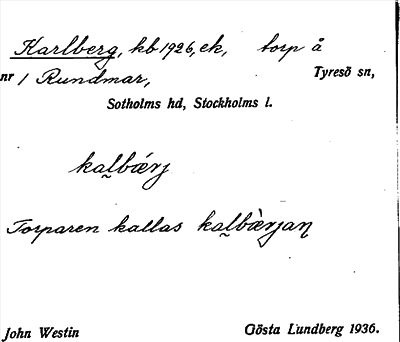 Karlberg, kb 1926, ek, torp å
nr 1 Rundmar, Tyresö sn,
Sotholms hd, Stockholms l.
kalbǽrj
Torparen kallas kalbæ̀rjaɳ
John Westin Gösta Lundberg 1936.